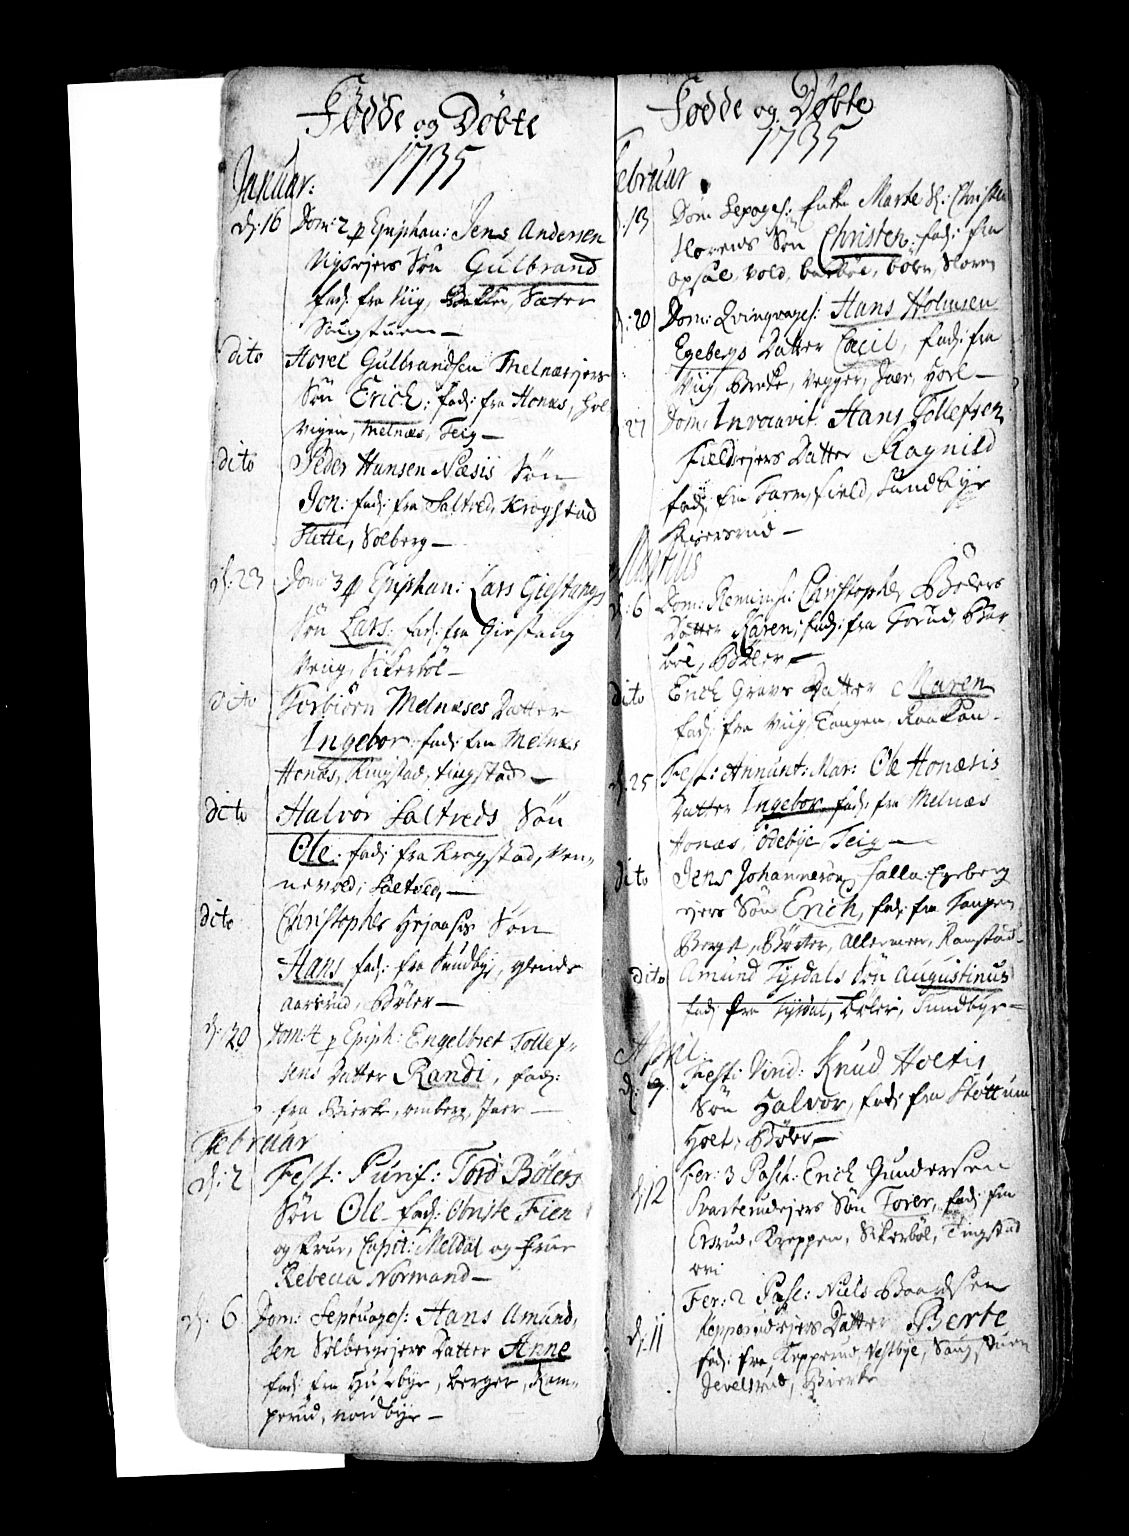 Fødde og Døbte
1735
Januar:
d: 16 Dom: 2 p Epiphan: Jens Andersen
Søn Gulbrand
fad: fra Viig, Sæter
dito Hovel Gulbrandsen Melnæsejers
Søn Erich: fad: fra Honæs, Hol
vigen, Melnæs, Teig
dito Peder Hansen Næsis Søn
Jon: fad: fra Saltved, Krogstad
Slette, Solberg
d: 23 Dom: 3 p Epiphan: Lars Gigstangs
Søn Lars: fad: fra Gigstang
Sikerböl
dito Torbiörn Melnæses Datter
Ingebor: fad: fra Melnæs
Honæs, Ringstad, Tingstad
dito Halvor Saltveds Søn
Ole: fad: fra Krogstad, Ven-
nevold, Saltved,
dito Christopher Søn
Hans fad: fra Sundbye,
Aarsrud, Böler
d: 30 Dom: 4 p Epiph: Engelbret Tollef-
sens Datter Randi, fad:
fra Bierke, omberg, Jaer
Februar
d: 2 Fest: Purif: Tord Bölers
Søn Ole fad: Obriste Fien
og Frue, Capit: Meldal og Frue
Rebecca Normand
d: 6 Dom: Septuages: Hans Amund-
sen Solbergejers Datter Anne
fad: fra Huseby, Berger, Ram-
perud, Nordbye
Fødde og Døbte
1735
Februar
d: 13 Dom: Sexages: Enken Marte Sl: Christen
Slorers Søn Christen: fad: fra
Opsal, Vold, Sloren
d: 20 Dom: Qvinqvages: Hans Holmsen
Egebergs Datter Cecil, fad: fra
Viig, Brecke, Vegger, Jaer, Horl
27 Dom: Invocavit. Hans Tollefsen
Fieldejers Datter Ragnild
fad: fra Field, Sundbye
Martius
d: 6 Dom: Reminisc: Christopher Bölers
Datter Karen, fad: fra Bar-
böl, Böler
dito Erich Gravs Datter Maren
fad: fra Viig, Tangen,
d: 25 Fest: Annunt: Mar: Ole Honæsis
Datter Ingebor fad: fra Melnæs
Honæs, Ödebye Teig
dito Jens Johannesön, Egeberg
ejers Søn Erich, fad: fra Tangen
Berget, Allermeer, Ramstad
dito Amund Tysdals Søn Augustinus
fad: fra Tysdal, Böler, Sundbye
April.
d: 7 Fest: Virid: Knud Holtis
Søn Halvor, fad: fra Stöttum
Holt, Böler
d: 12 Fer: 3 Pasch: Erich Gundersen
Svarterudejers Søn Torer, fad: fra
Ersrud, Kreppen, Sikerböl, Tingstad
Fer: 2 Pasc: Niels
d: 11 Kepperudejers Datter Berte
fad: fra Kepperud Vestbye, Saug,
Bierke